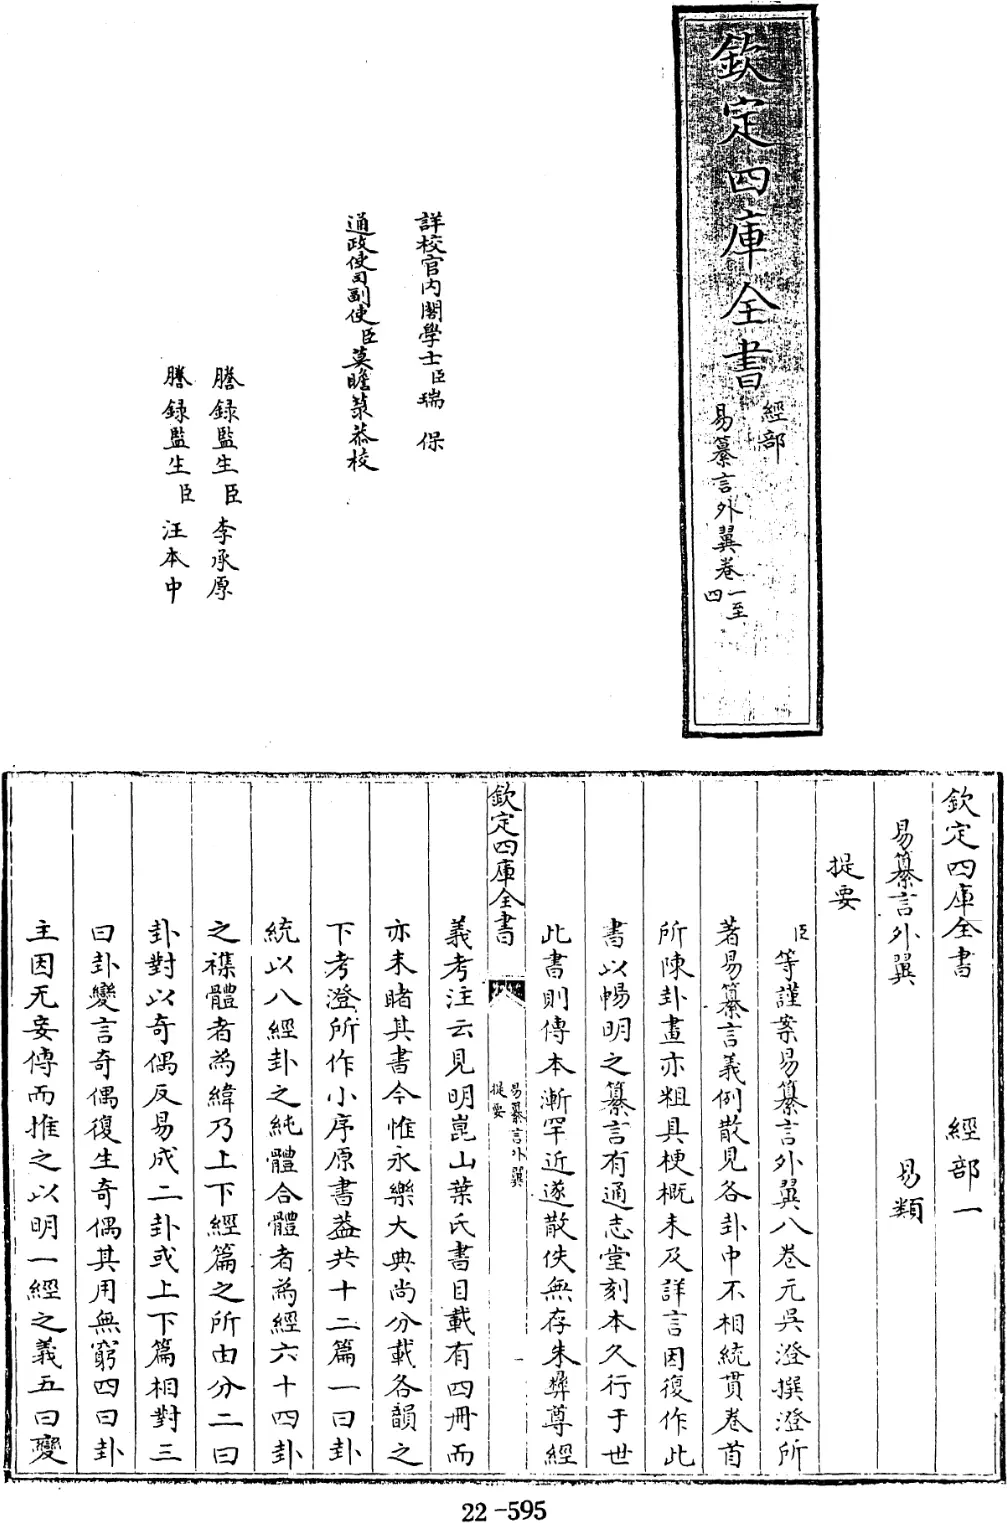 欽定四庫全書
經部
易纂言外翼卷一至四
詳校官內閣學士臣瑞保
通政使司副使臣莫瞻菉恭校
謄錄監生臣李承原
謄錄監生臣汪本中
欽定四庫全書　經部一
易纂言外翼　易類
提要
臣等謹案易纂言外翼八卷元吳澄撰澄所
著易纂言義例散見各卦中不相統貫卷首
所陳卦畫亦粗具梗概未及詳言因復作此
書以暢明之纂言有通志堂刻本久行于世
此書則傳本漸罕近遂散佚無存朱彝尊經
欽定四庫全書　易纂言外翼提要　一
義考注云見明崑山葉氏書目載有四冊而
亦未睹其書今惟永樂大典尚分載各韻之
下考澄所作小序原書蓋共十二篇一曰卦
統以八經卦之純體合體者為經六十四卦
之襍體者為緯乃上下經篇之所由分二曰
卦對以奇偶反易成二卦或上下篇相對三
曰卦變言奇偶復生奇偶其用無窮四曰卦
主因无妄傳而推之以明一經之義五曰變
22-595